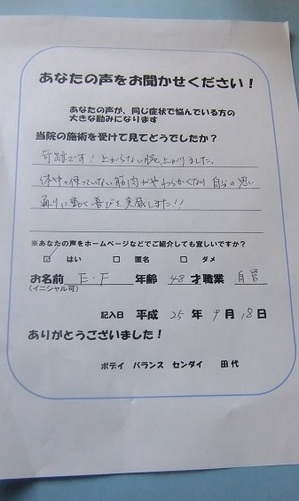 あなたの声をお聞かせください！
あなたの声が、同じ症状で悩んでいる方の
大きな励みになります
当院の施術を受けて見てどうでしたか？
奇跡です！上がらない腕が上がりました。
体中の使っていない筋肉がやわらかくなり 自分の思い
通りに動く喜びを実感しました!!
※あなたの声をホームページなどでご紹介しても宜しいですか？
☑ はい □ 匿名 □ ダメ
お名前 E・F 年齢 48 才職業 自営
(イニシャル可)
記入日 平成 25 年 9 月 18 日
ありがとうございました！
ボディ バランス センダイ 田代